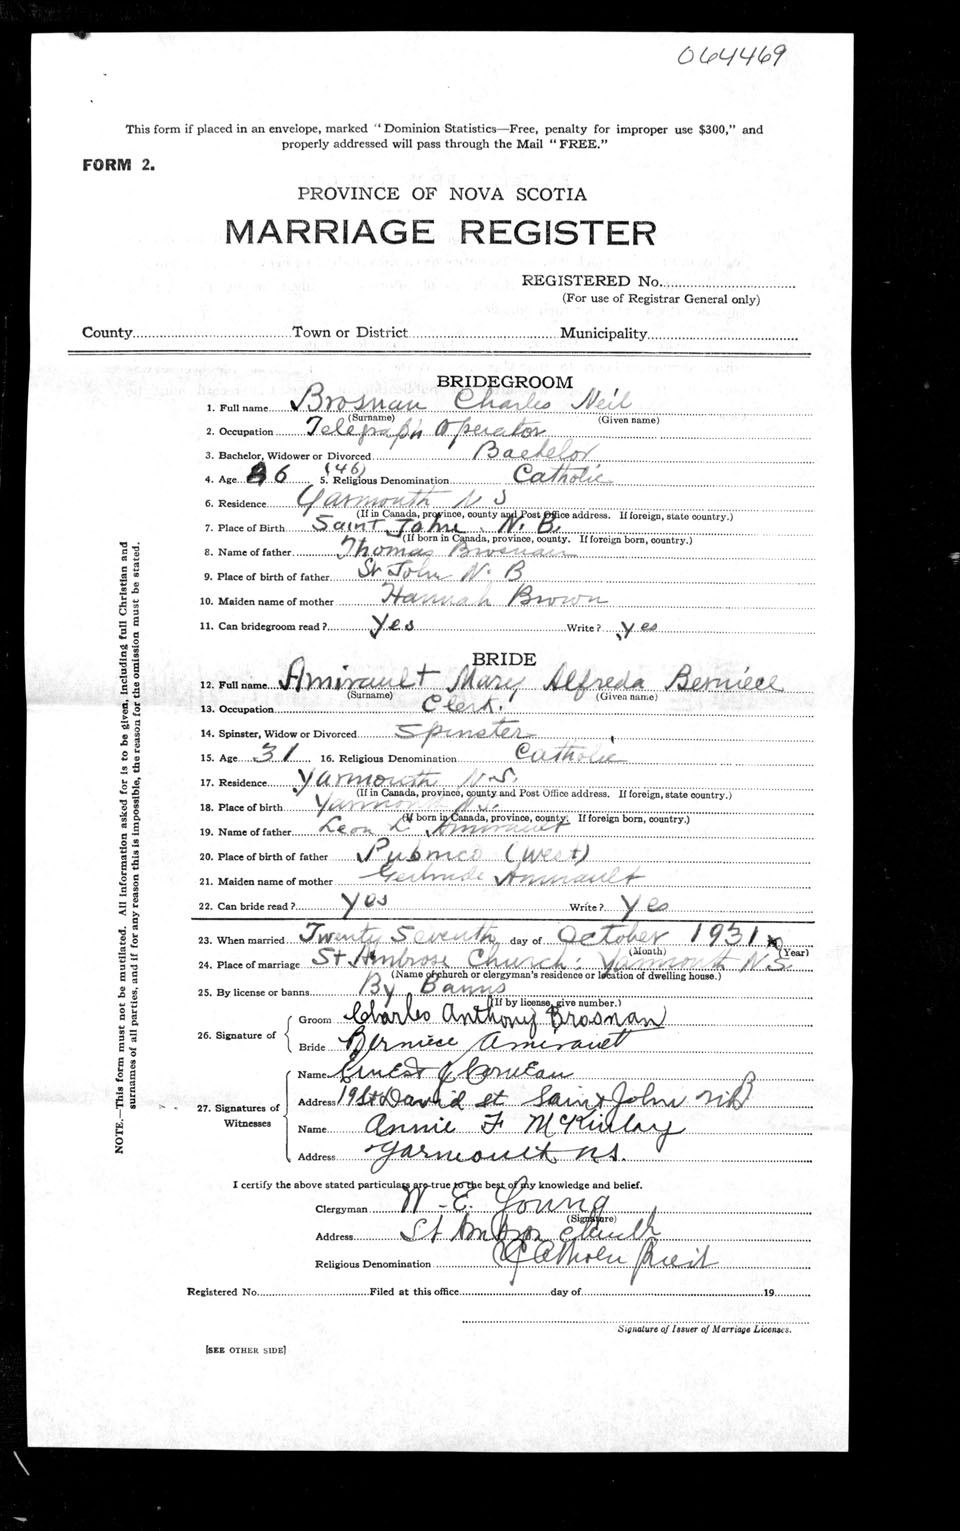 064469
This form if placed in an envelope, marked "Dominion Statistics—Free, penalty for improper use $300," and
properly addressed will pass through the Mail "FREE."
FORM 2.
PROVINCE OF NOVA SCOTIA
MARRIAGE REGISTER
REGISTERED No.
(For use of Registrar General only)
County Town or District Municipality
BRIDEGROOM
1. Full name Brosnan Charles Neil
(Surname) (Given name)
2. Occupation Telegraph Operator
3. Bachelor, Widower or Divorced Bachelor
4. Age 6 (46) 5. Religious Denomination Catholic
6. Residence Yarmouth N S
(If in Canada, province, county and Post Office address. If foreign, state country.)
7. Place of Birth Saint John N. B.
(If born in Canada, province, county. If foreign born, country.)
8. Name of father Thomas Brosnan
9. Place of birth of father St John N. B
10. Maiden name of mother Hannah Brown
11. Can bridegroom read? Yes Write? yes
BRIDE
12. Full name Amirault Mary Alfreda Berniece
(Surname) (Given name)
13. Occupation Clerk.
14. Spinster, Widow or Divorced Spinster
15. Age 31 16. Religious Denomination Catholic
17. Residence Yarmouth N.S.
(If in Canada, province, county and Post Office address. If foreign, state country.)
18. Place of birth Yarmouth N.S.
(If born in Canada, province, county. If foreign born, country.)
19. Name of father Leon L Amirault
20. Place of birth of father Pubnico (West)
21. Maiden name of mother Gertrude Amirault
22. Can bride read? Yes Write? Yes
23. When married Twenty Seventh day of October 1931
(Month) (Year)
24. Place of marriage St Ambrose Church: Yarmouth N.S.
(Name of church or clergyman's residence or location of dwelling house.)
25. By license or banns By Banns
(If by license, give number.)
26. Signature of Groom Charles Anthony Brosnan
Bride Berniece Amirault
27. Signatures of Witnesses Name Ernest J
Address 19 St David st Saint John NB
Name Annie F McKinlay
Address Yarmouth N.S.
I certify the above stated particulars are true to the best of my knowledge and belief.
Clergyman W - E. Young
(Signature)
Address St Church
Religious Denomination Catholic Priest
Registered No. Filed at this office day of 19
Signature of Issuer of Marriage Licenses.
[SEE OTHER SIDE]
NOTE.—This form must not be mutilated. All information asked for is to be given, including full Christian and
surnames of all parties, and if for any reason this is impossible, the reason for the omission must be stated.